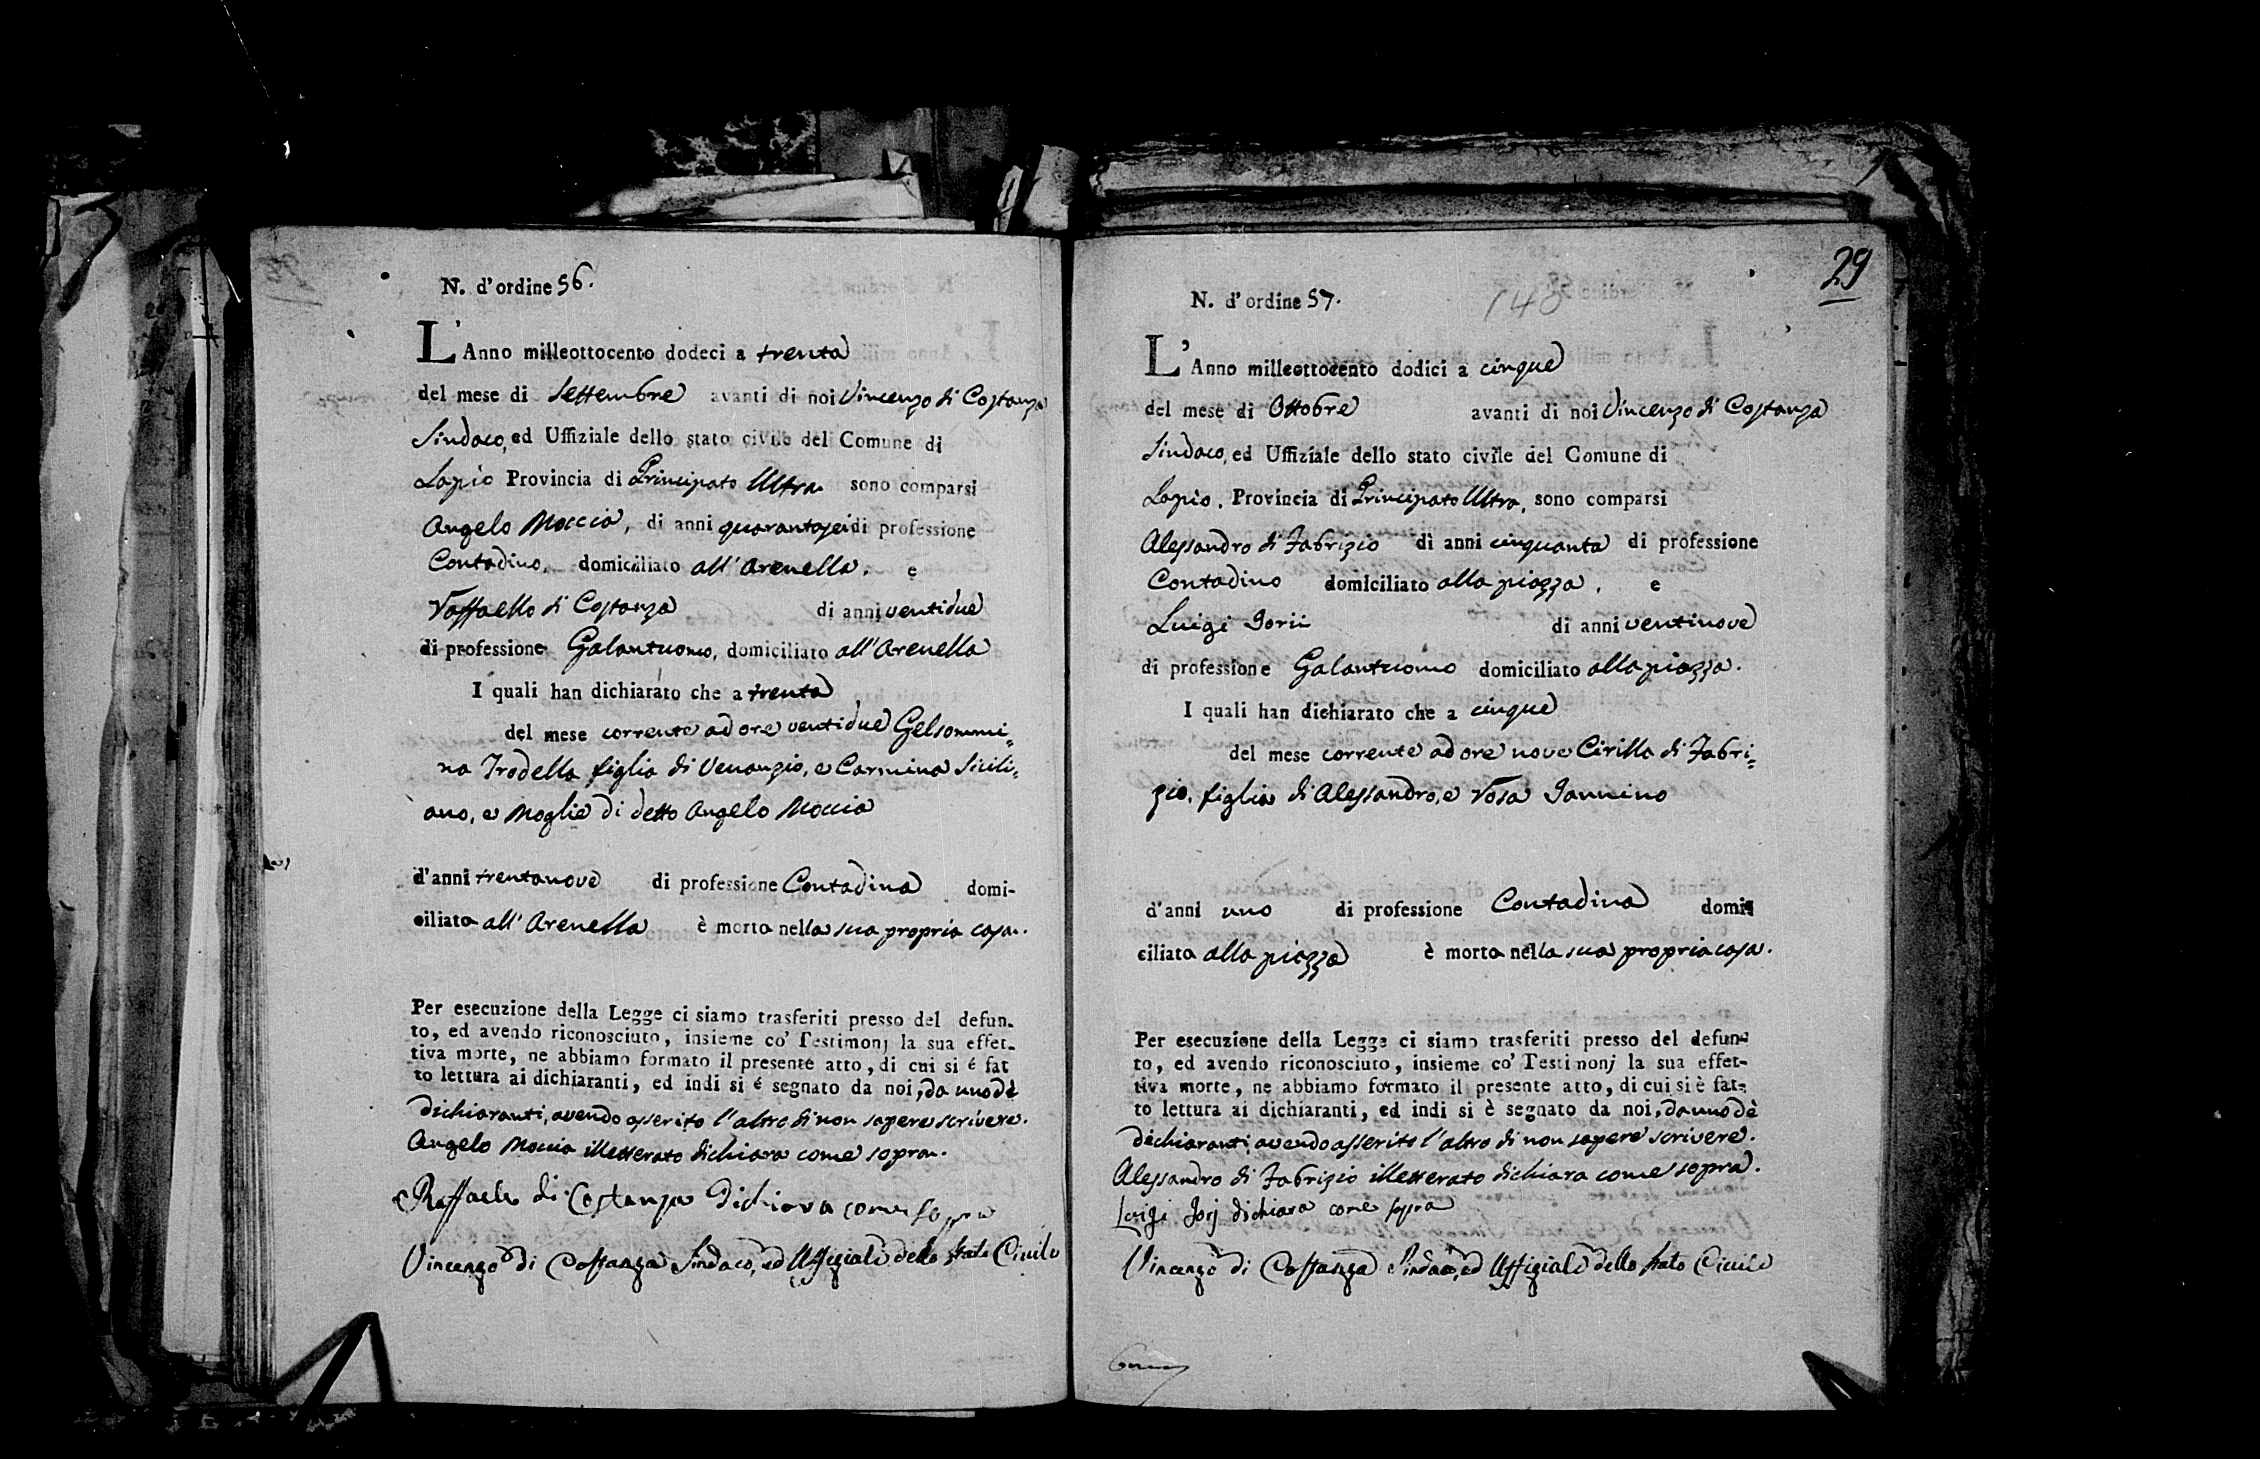 N. d'ordine 56.
L'Anno milleottocento dodeci a trenta
del mese di Settembre avanti di noi Vincenzo di Costanza
Sindaco, ed Uffiziale dello stato civile del Comune di
Lapio Provincia di Principato Ultra sono comparsi
Angelo Moccia, di anni quarantasei di professione
Contadino, domiciliato all'Arenella, e
Raffaello di Costanza di anni ventidue
di professione Galantuomo, domiciliato all'Arenella
I quali han dichiarato che a trenta
del mese corrente ad ore ventidue Gelsommi=
na Trodella figlia di Venanzio, e Carmina Sicili=
ano, e Moglie di detto Angelo Moccia
d'anni trentanove di professione Contadina domi-
ciliata all'Arenella è morta nella sua propria casa.
Per esecuzione della Legge ci siamo trasferiti presso del defun-
to, ed avendo riconosciuto, insieme co' Testimonj la sua effet-
tiva morte, ne abbiamo formato il presente atto, di cui si é fat
to lettura ai dichiaranti, ed indi si é segnato da noi, da uno dè
dichiaranti, avendo asserito l'altro di non sapere scrivere.
Angelo Moccia illetterato dichiara come sopra.
Raffaele di Costanza Dichiara come sopra
Vincenzo di Costanza Sindaco, ed Uffiziale dello stato Civile
29
N. d'ordine 57.
140
L'Anno milleottocento dodici a cinque
del mese di Ottobre avanti di noi Vincenzo di Costanza
Sindaco, ed Uffiziale dello stato civile del Comune di
Lapio. Provincia di Principato Ultra, sono comparsi
Alessandro di Fabrizio di anni cinquanta di professione
Contadino domiciliato alla piazza, e
Luigi Iorii di anni ventinove
di professione Galantuomo domiciliato alla piazza.
I quali han dichiarato che a cinque
del mese corrente ad ore nove Cirilla di Fabri=
zio, figlia di Alessandro, e Rosa Iannino
d'anni uno di professione Contadina domi
ciliata alla piazza è morta nella sua propria casa.
Per esecuzione della Legge ci siamo trasferiti presso del defun-
to, ed avendo riconosciuto, insieme co' Testimonj la sua effet-
tiva morte, ne abbiamo formato il presente atto, di cui si è fat-
to lettura ai dichiaranti, ed indi si è segnato da noi, da uno dè
dichiaranti, avendo asserito l'altro di non sapere scrivere.
Alessandro di Fabrizio illetterato dichiara come sopra.
Luigi Iorj dichiara come sopra
Vincenzo di Costanza Sindaco, ed Uffiziale dello stato Civile